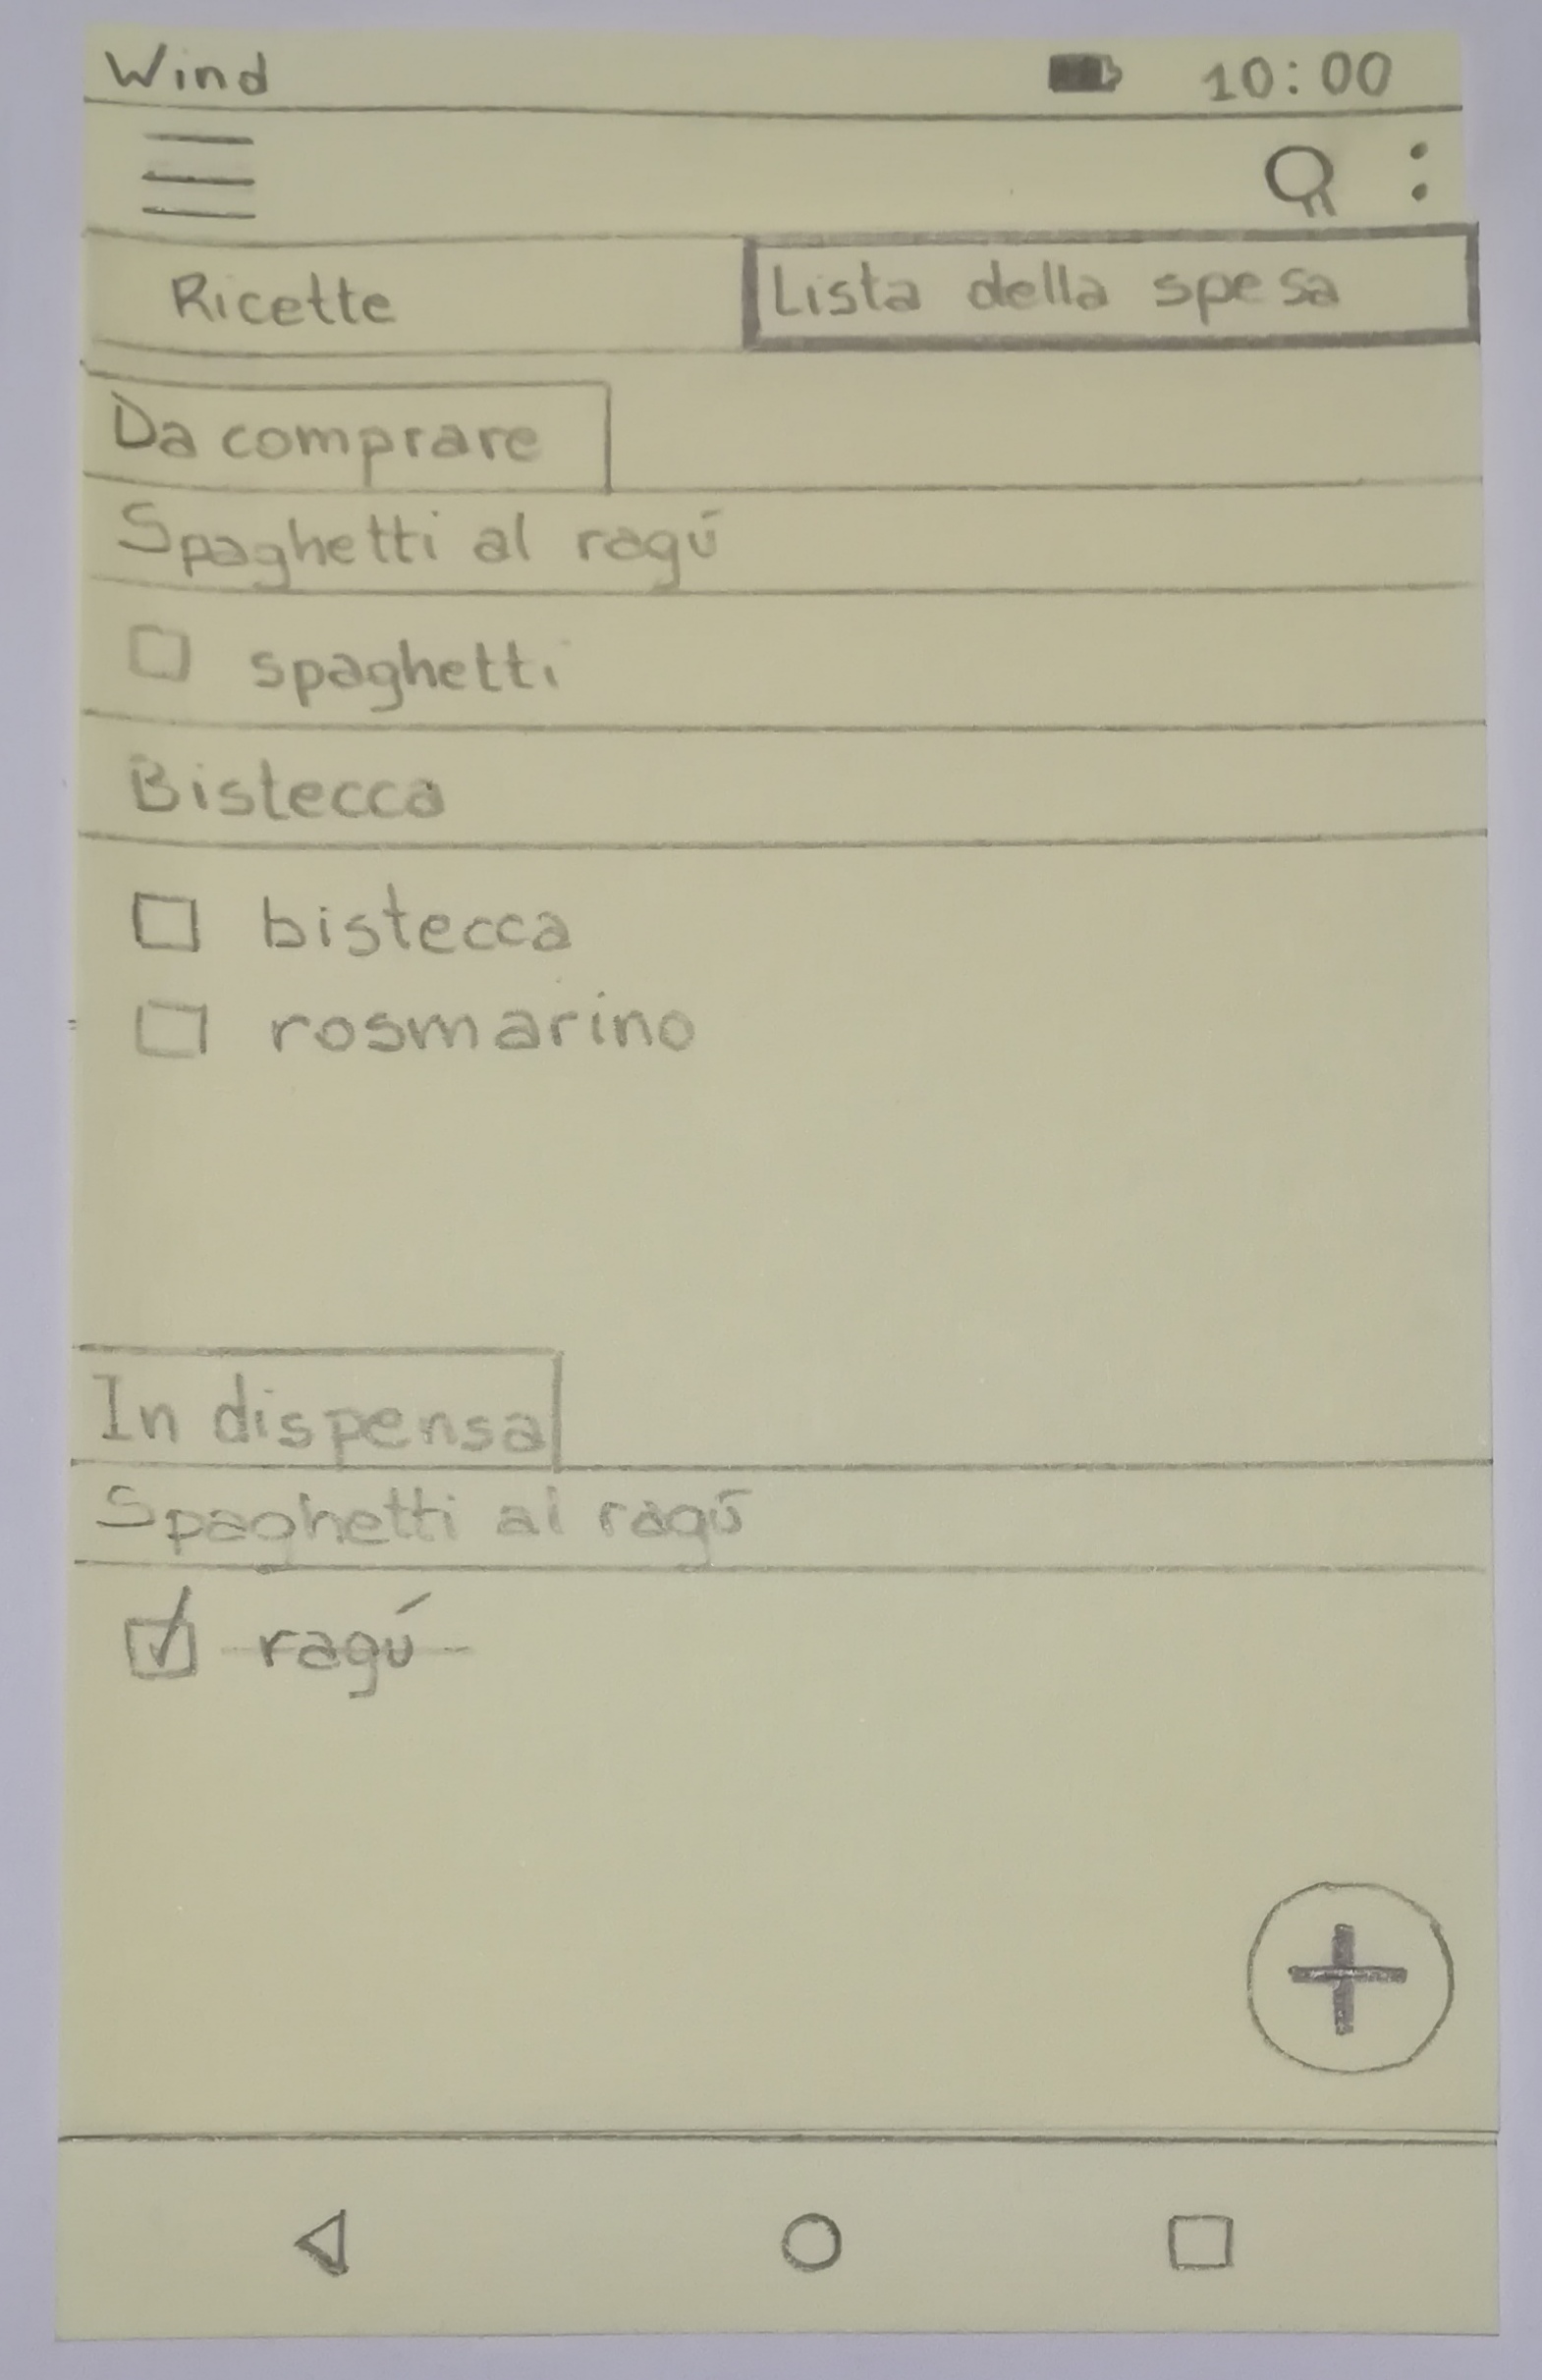 Wind 10:00
Ricette Lista della spesa
Da comprare
Spaghetti al ragú
spaghetti
Bistecca
bistecca
rosmarino
In dispensa
Spaghetti al ragú
ragú